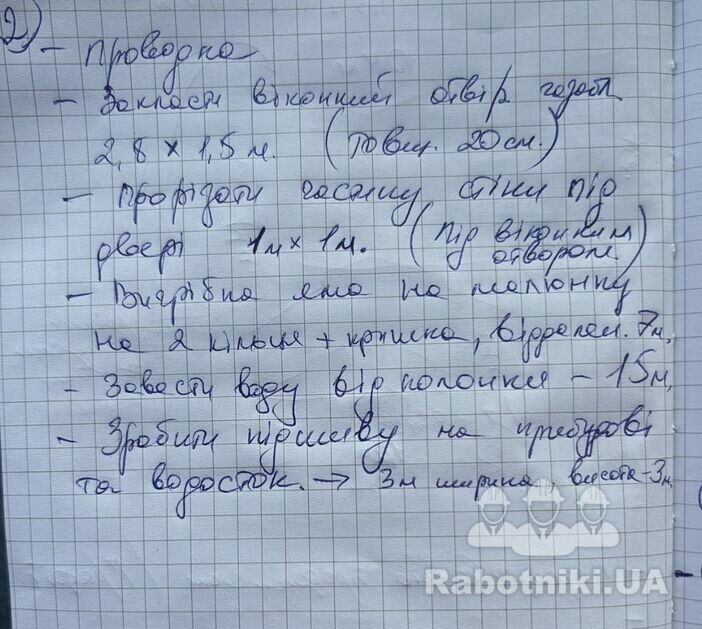 2)
- проводка
- Закласти віконний отвір газобл.
2,8 × 1,5 м. (товщ. 20 см.)
- Прорізати частину стіни під
двері 1м × 1м. (під віконним
отвором)
- Вигрібна яма на малюнку
на 2 кільця + кришка, віддален. 7м,
- Завести воду від колонки - 15м,
- Зробити підшиву на прибудові
та водосток. → 3м ширина, висота - 3м
Rabotniki.UA